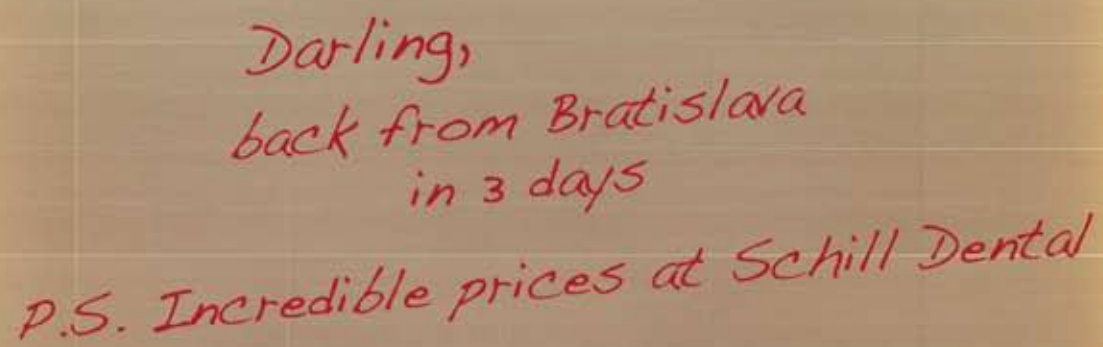 Darling,
back from Bratislava
in 3 days
P.S. Incredible prices at Schill Dental